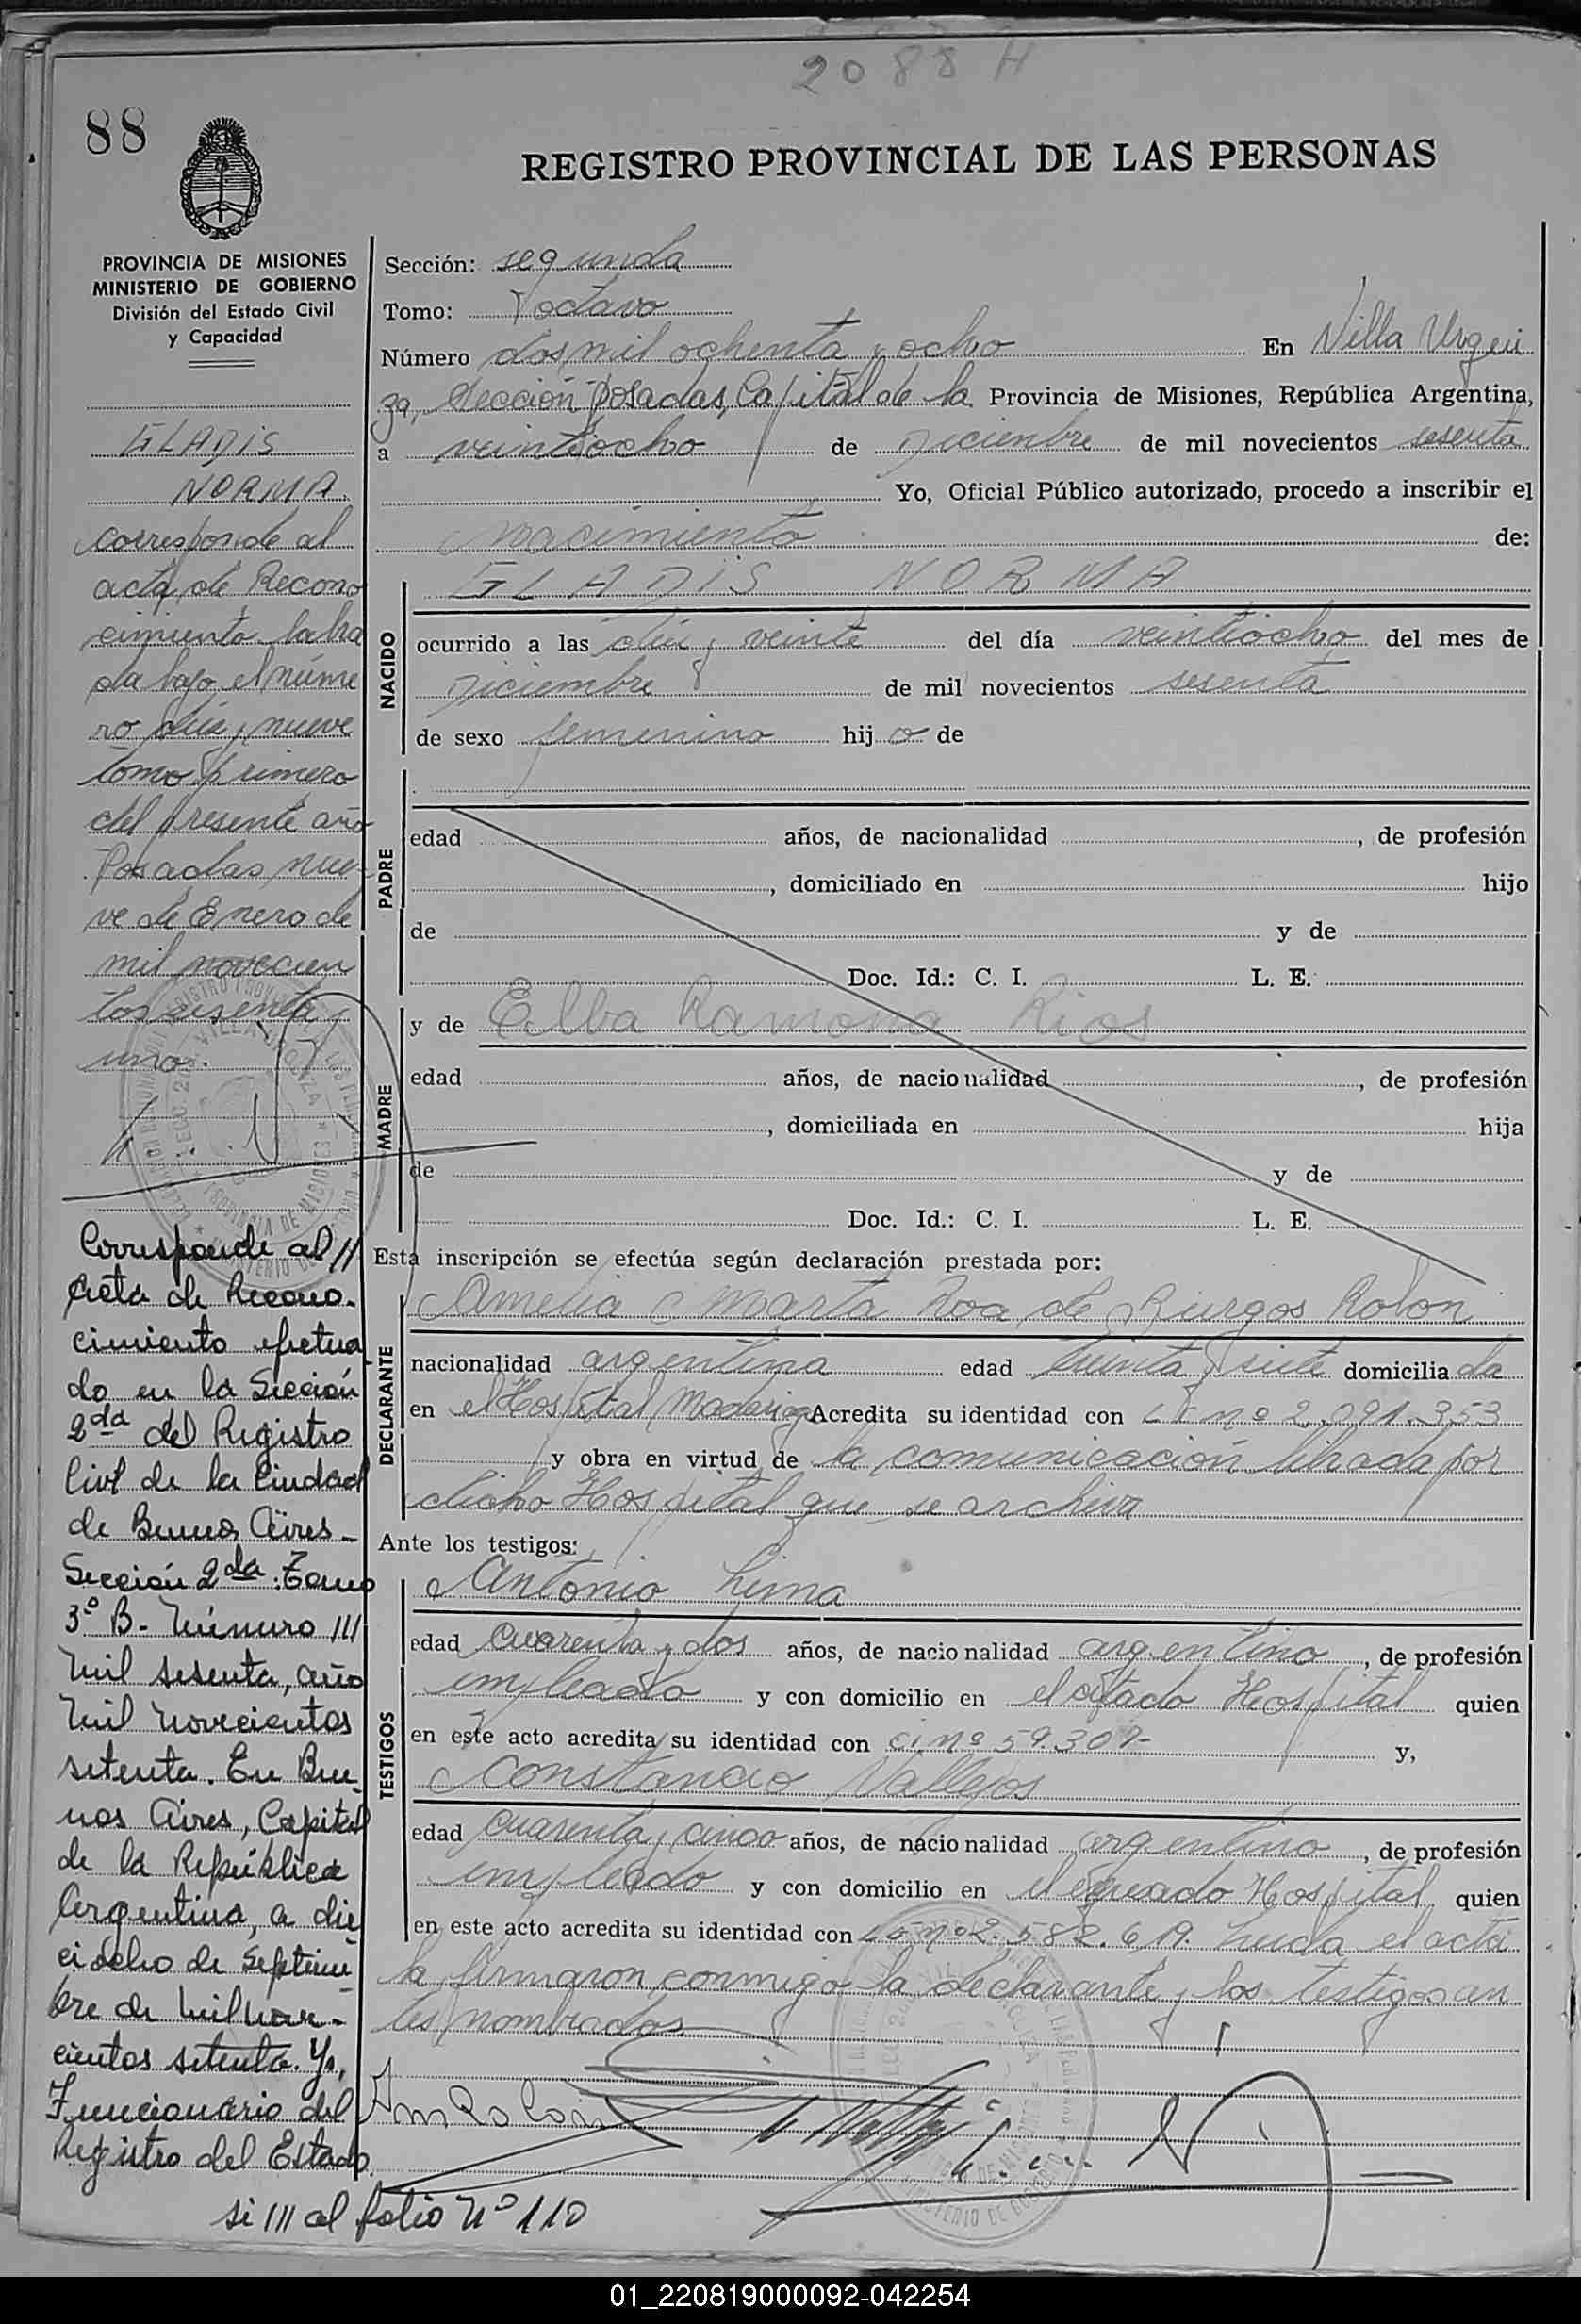 2088 H
88
REGISTRO PROVINCIAL DE LAS PERSONAS
PROVINCIA DE MISIONES
MINISTERIO DE GOBIERNO
División del Estado Civil
y Capacidad
GLADIS
NORMA
corresponde al
acta de Recono
cimiento labra
da bajo el núme
ro diez y nueve
tomo primero
del presente año
Posadas, nue-
ve de Enero de
mil novecien
tos sesenta y
uno.
Corresponde al //
Acta de Recono-
cimiento efectua
do en la Sección
2da del Registro
Civil de la Ciudad
de Buenos Aires -
Sección 2da: Tomo
3º B - Número ///
mil sesenta, año
mil novecientos
setenta. En Bue-
nos Aires, Capital
de la República
Argentina, a die
ciocho de Septiem-
bre de mil nove-
cientos setenta. Yo,
Funcionario del
Registro del Estado
si /// al folio Nº 110
Sección: segunda
Tomo: octavo
Número dos mil ochenta y ocho En Villa Urqui
za, Sección Posadas, Capital de la Provincia de Misiones, República Argentina,
a veintiocho de Diciembre de mil novecientos sesenta
Yo, Oficial Público autorizado, procedo a inscribir el
nacimiento de:
NACIDO
GLADIS NORMA
ocurrido a las diez y veinte del día veintiocho del mes de
Diciembre de mil novecientos sesenta
de sexo femenino hijo de
PADRE
edad años, de nacionalidad , de profesión
, domiciliado en hijo
de y de
Doc. Id.: C. I. L. E.
MADRE
y de Elba Ramona Rios
edad años, de nacionalidad , de profesión
, domiciliada en hija
de y de
Doc. Id.: C. I. L. E.
Esta inscripción se efectúa según declaración prestada por:
DECLARANTE
Amelia Marta Roa de Burgos Rolon
nacionalidad argentina edad treinta y siete domiciliada
en el Hospital Madariaga Acredita su identidad con nº 2.091.353
y obra en virtud de la comunicación librada por
dicho Hospital que se archiva
Ante los testigos:
TESTIGOS
Antonio Lima
edad cuarenta y dos años, de nacionalidad argentino, de profesión
empleado y con domicilio en el citado Hospital quien
en este acto acredita su identidad con C.I. nº 59.307- y,
Constancio Vallejos
edad cuarenta y cinco años, de nacionalidad argentino, de profesión
empleado y con domicilio en el Hospital quien
en este acto acredita su identidad con nº 2.582.619. Leida el acta
la firmaron conmigo la declarante y los testigos an
tes nombrados
01_220819000092-042254